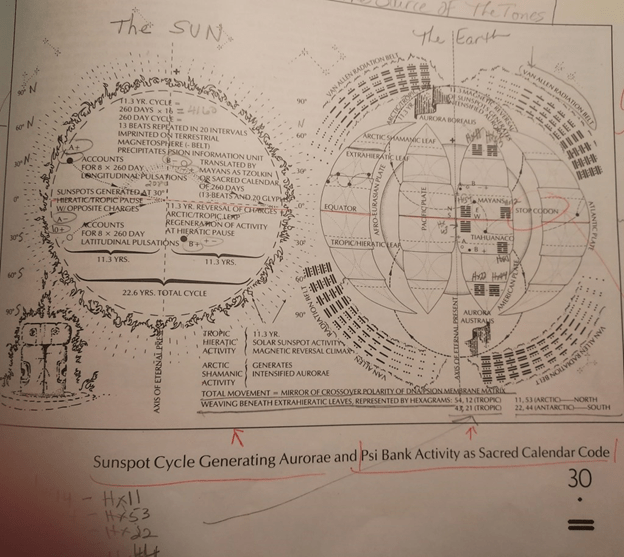 Source of The Tones
The SUN
The Earth
VAN ALLEN RADIATION BELT
VAN ALLEN RADIATION BELT
11.3 YR. CYCLE =
260 DAYS × 16 = 4160
260 DAY CYCLE =
13 BEATS REPEATED IN 20 INTERVALS
IMPRINTED ON TERRESTRIAL
MAGNETOSPHERE (- BELT)
PRECIPITATES PSION INFORMATION UNIT
A+
ACCOUNTS
FOR 8 × 260 DAY
LONGITUDINAL PULSATIONS
B-
TRANSLATED BY
MAYANS AS TZOLKIN
OR SACRED CALENDAR
OF 260 DAYS
(13 BEATS AND 20 GLYPHS)
SUNSPOTS GENERATED AT 30°
HIERATIC/TROPIC PAUSE
W/OPPOSITE CHARGES
A-
ACCOUNTS
FOR 8 × 260 DAY
LATITUDINAL PULSATIONS
11.3 YR. REVERSAL OF CHARGES
ARCTIC/TROPIC LEAP
REGENERATION OF ACTIVITY
AT HIERATIC PAUSE
B+
11.3 YRS.
11.3 YRS.
22.6 YRS. TOTAL CYCLE
90°
60°
30°
0°
30°
60°
90°
AURORA BOREALIS
ARCTIC SHAMANIC LEAF
EXTRAHIERATIC LEAF
EQUATOR
TROPIC/HIERATIC LEAF
AFRO-EURASIAN PLATE
PACIFIC PLATE
MAYANS
STOP CODON
TIAHUANACO
AMERICAN PLATE
ATLANTIC PLATE
AURORA
AUSTRALIS
VAN ALLEN
RADIATION BELT
VAN ALLEN RADIATION BELT
AXIS OF ETERNAL PRES
AXIS OF ETERNAL PRESENT
TROPIC
HIERATIC
ACTIVITY
11.3 YR.
SOLAR SUNSPOT ACTIVITY
MAGNETIC REVERSAL CLIMAX
ARCTIC
SHAMANIC
ACTIVITY
GENERATES
INTENSIFIED AURORAE
TOTAL MOVEMENT = MIRROR OF CROSSOVER POLARITY OF DNA/PSION MEMBRANE MATRIX
WEAVING BENEATH EXTRAHIERATIC LEAVES, REPRESENTED BY HEXAGRAMS: 54, 12 (TROPIC) 11, 53 (ARCTIC)—NORTH
47, 21 (TROPIC) 22, 44 (ANTARCTIC)—SOUTH
Sunspot Cycle Generating Aurorae and Psi Bank Activity as Sacred Calendar Code
30
- HX11
- HX53
- HX22
44